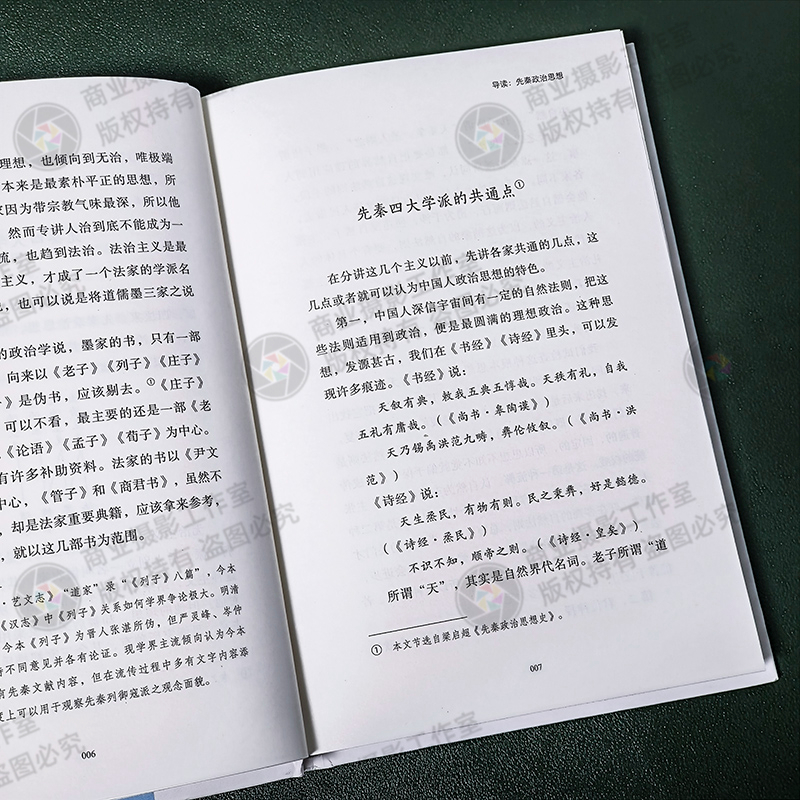 理想，也倾向到无治，唯极端
本来是最素朴平正的思想，所
家因为带宗教气味最深，所以他
然而专讲人治到底不能成为一
流，也趋到法治。法治主义是最
主义，才成了一个法家的学派名
也可以说是将道儒墨三家之说
的政治学说，墨家的书，只有一部
向来以《老子》《列子》《庄子》
》是伪书，应该剔去。①《庄子》
可以不看，最主要的还是一部《老
《论语》《孟子》《荀子》为中心。
有许多补助资料。法家的书以《尹文
中心，《管子》和《商君书》，虽然不
却是法家重要典籍，应该拿来参考，
就以这几部书为范围。
·艺文志》“道家”录“《列子》八篇”，今本
《汉志》中《列子》关系如何学界争论极大。明清
今本《列子》为晋人张湛所伪，但严灵峰、岑仲
持不同意见并各有论证。现学界主流倾向认为今本
有先秦文献内容，但在流传过程中多有文字内容添
度上可以用于观察先秦列御寇派之观念面貌。
006
导读：先秦政治思想
先秦四大学派的共通点①
在分讲这几个主义以前，先讲各家共通的几点，这
几点或者就可以认为中国人政治思想的特色。
第一，中国人深信宇宙间有一定的自然法则，把这
些法则适用到政治，便是最圆满的理想政治。这种思
想，发源甚古，我们在《书经》《诗经》里头，可以发
现许多痕迹。《书经》说：
天叙有典，敕我五典五惇哉。天秩有礼，自我
五礼有庸哉。（《尚书·皋陶谟》）
天乃锡禹洪范九畴，彝伦攸叙。（《尚书·洪
范》）
《诗经》说：
天生烝民，有物有则。民之秉彝，好是懿德。
（《诗经·烝民》）
不识不知，顺帝之则。（《诗经·皇矣》）
所谓“天”，其实是自然界代名词。老子所谓“道
① 本文节选自梁启超《先秦政治思想史》。
007
商业摄影工作室
版权持有 盗图必究